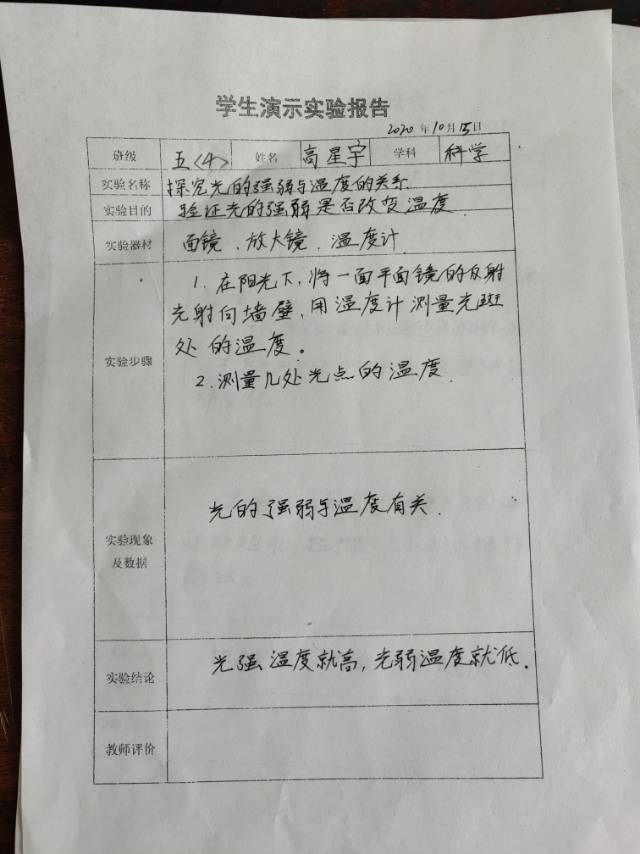 学生演示实验报告
2020年10月15日
班级 五<4> 姓名 高星宇 学科 科学
实验名称 探究光的强弱与温度的关系
实验目的 验证光的强弱是否改变温度
实验器材 面镜、放大镜、温度计
1. 在阳光下，将一面平面镜的反射
光射向墙壁，用温度计测量光斑
处的温度。
实验步骤
2. 测量几处光点的温度.
光的强弱与温度有关.
实验现象
及数据
光强温度就高，光弱温度就低.
实验结论
教师评价